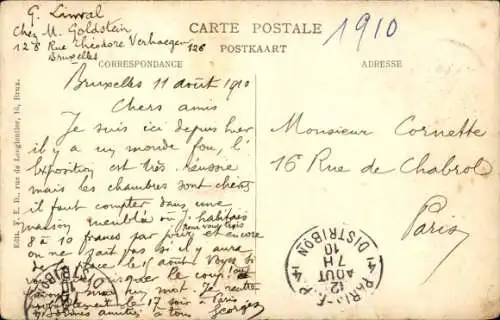 G. Linval
Chez M. Goldstein
126 Rue Théodore Verhaegen 126
Bruxelles
CARTE POSTALE
POSTKAART
1910
CORRESPONDANCE
ADRESSE
Bruxelles 11 août 1910
Chers amis
Je suis ici depuis hier
il y a un monde fou, l'
Exposition est très réussie
mais les chambres sont chères
il faut compter dans une
maison meublée où j'habite
pour vous trois
8 à 10 francs par jour et encore
on ne sait pas si il y aura
de place le 15 août
risque le coup
un mot. Je rentre
le 17 soir à Paris
amitiés à tous Georges
Monsieur Cornette
16 Rue de Chabrol
Paris
PARIS
DISTRIBON
4
12
AOUT
7H
10
4
DISTRIBON
Edit. V. E. D., rue de 10, Brux.